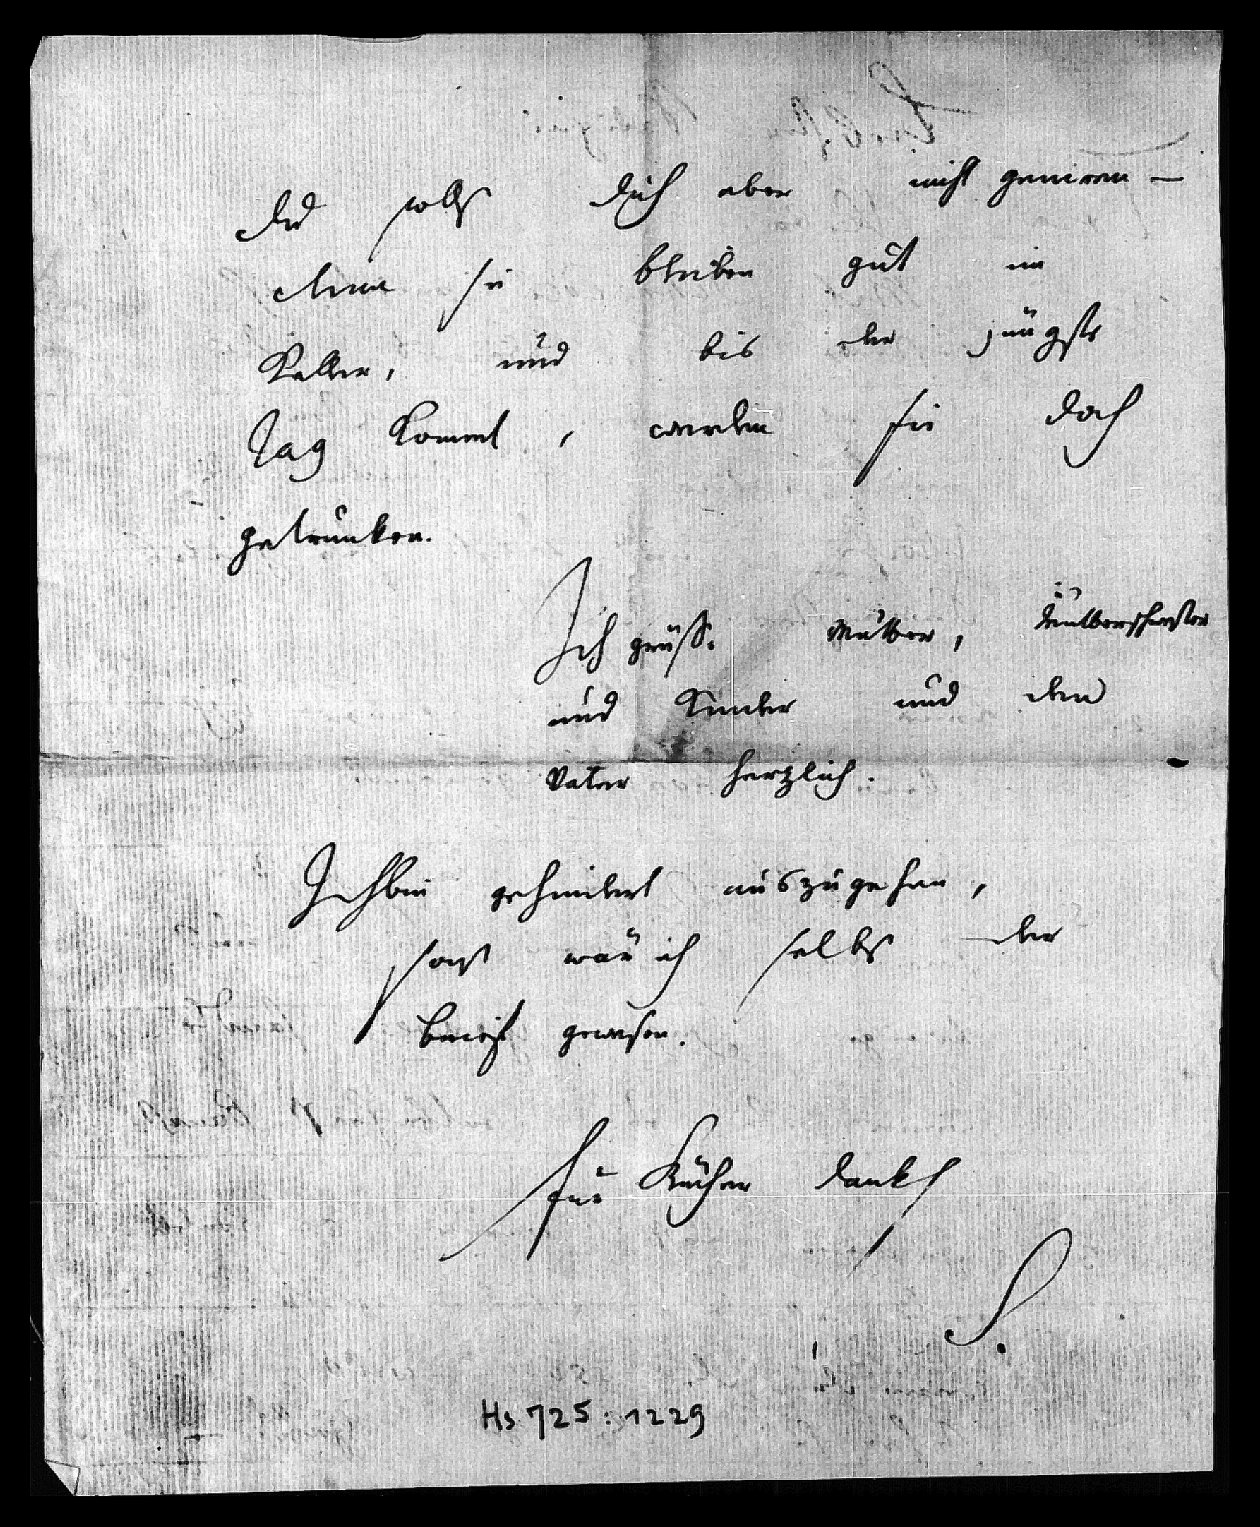 Du sollst Dich aber nicht geniren —
denn sie bleiben gut im
Keller, und bis der jüngste
Tag kommt, werden sie doch
getrunken.
Ich grüße Mutter,
und Kinder und den
Vater herzlich.
Ich bin gehindert auszugehen,
sonst wär ich selbst der
gewesen.
Für Bücher dank
S.
Hs 725: 1229